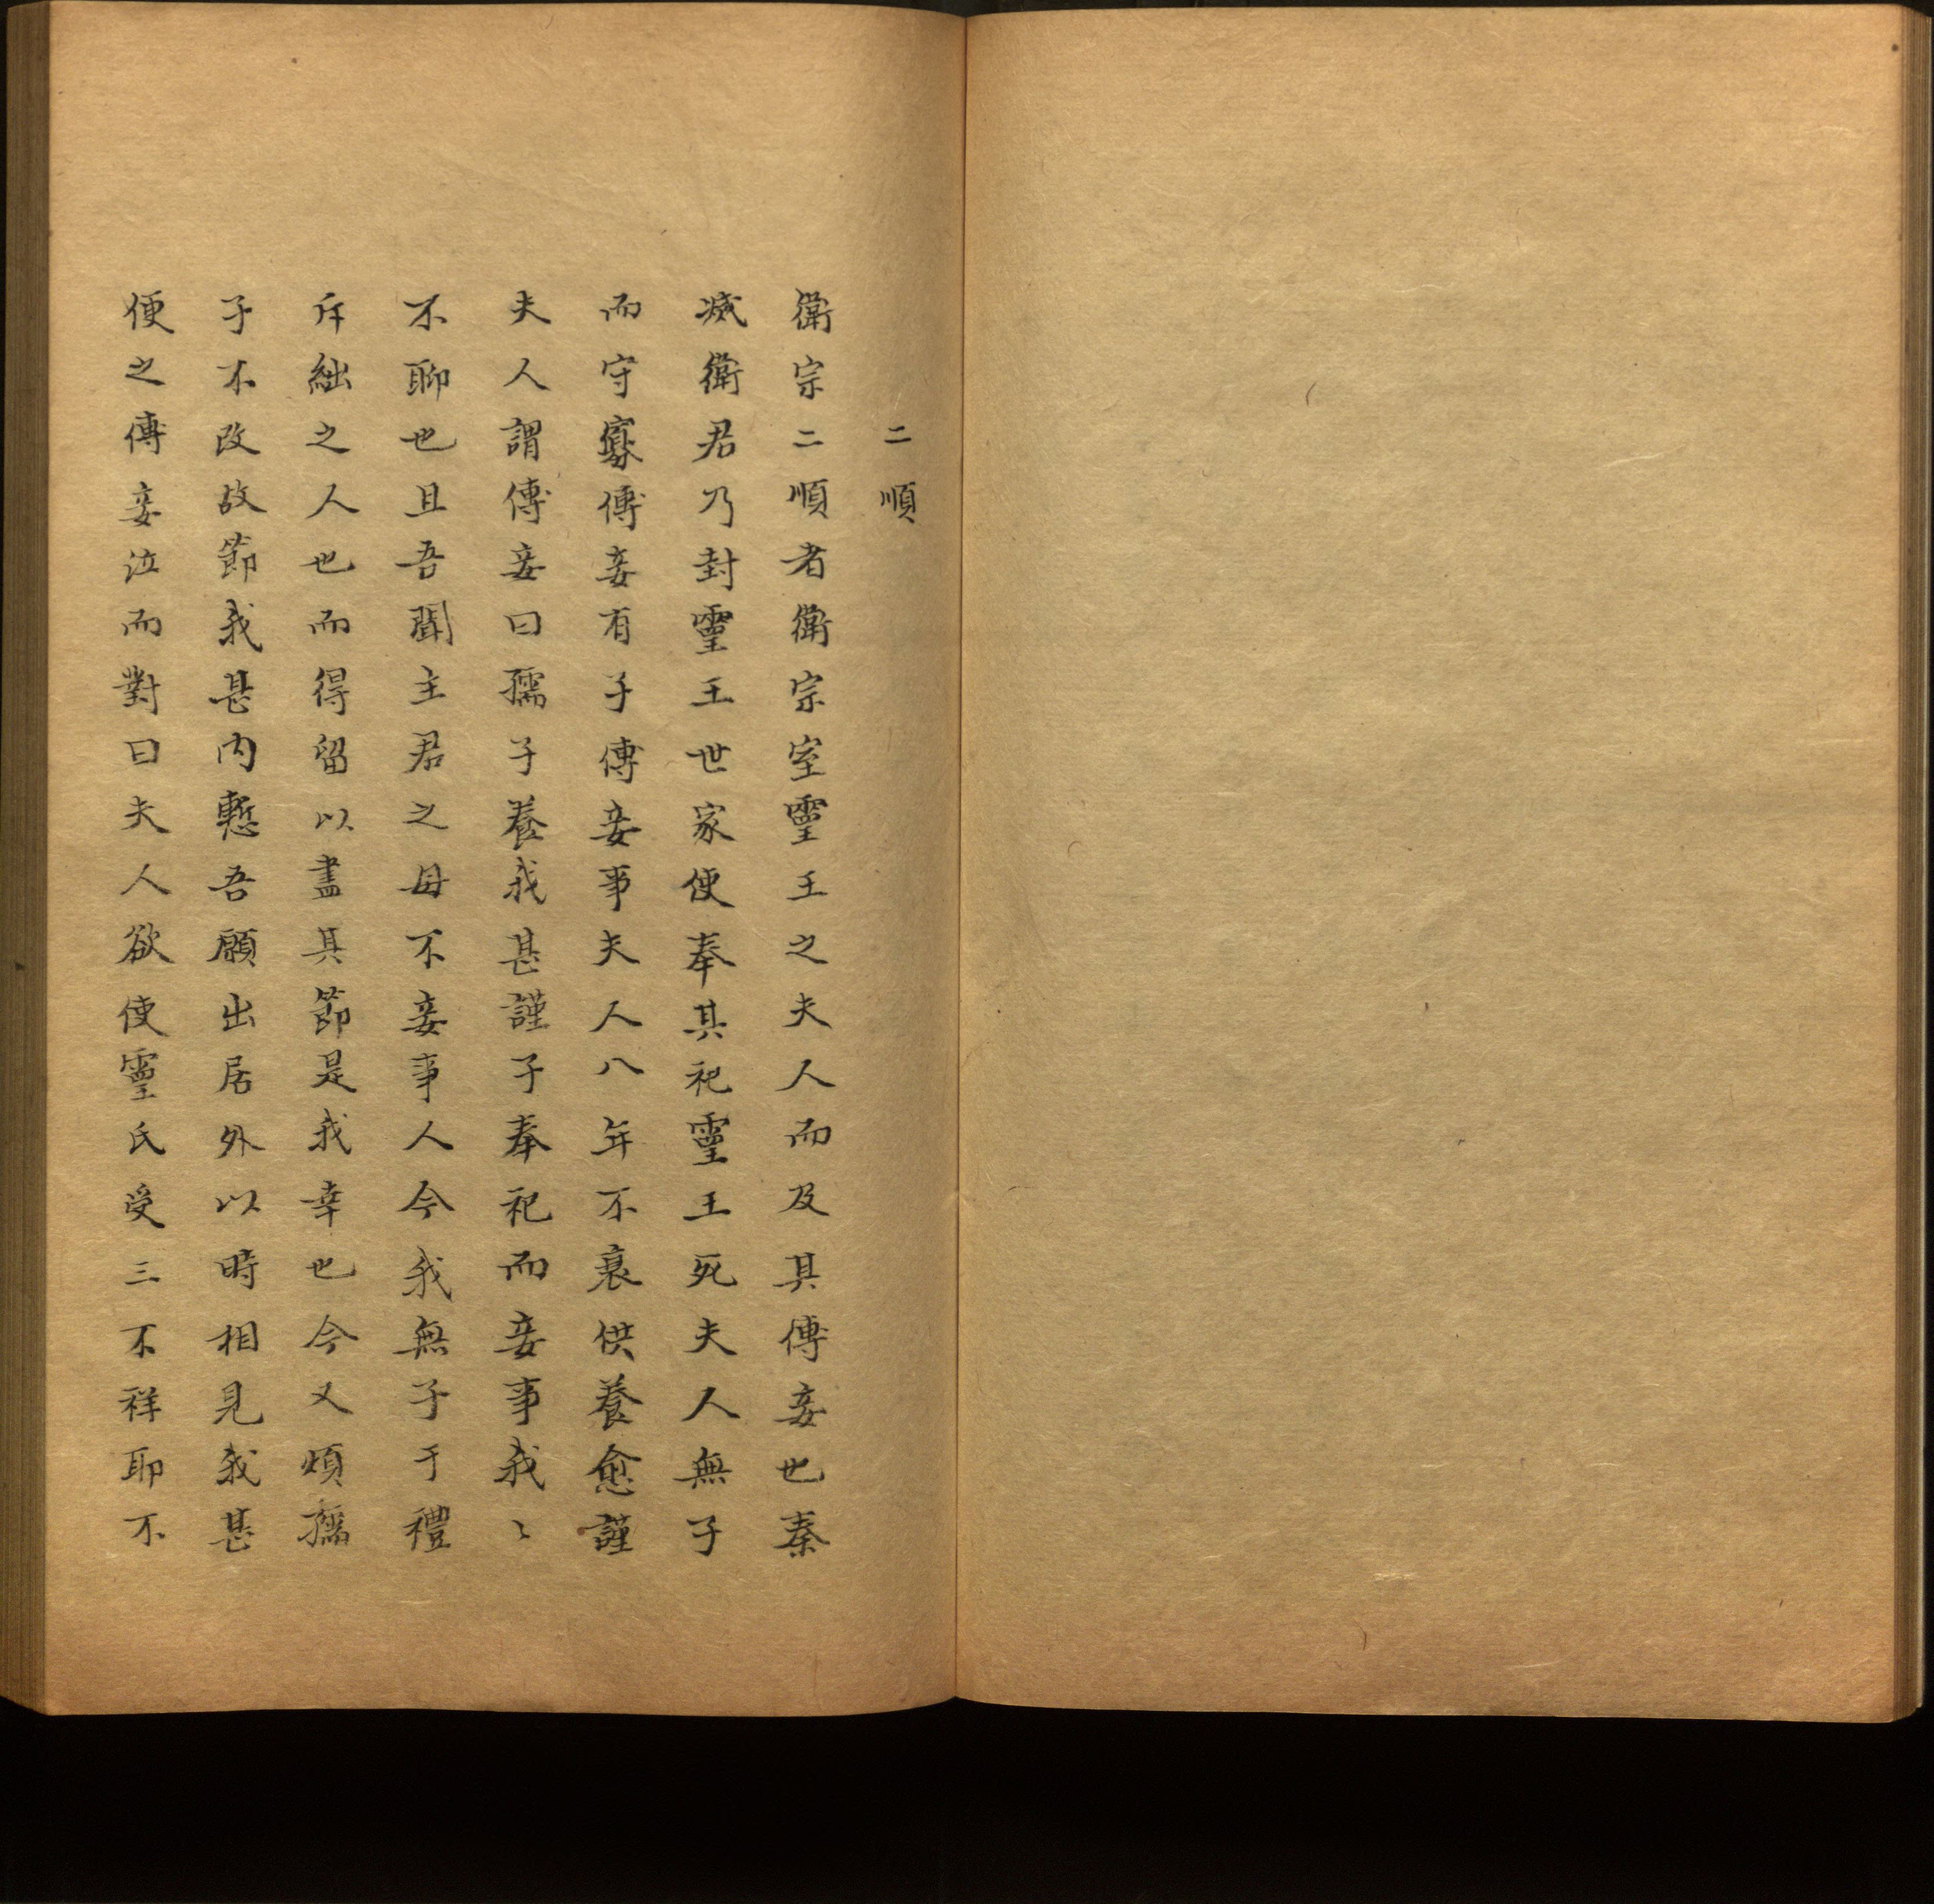 二順
衛宗二順者衛宗室靈王之夫人而及其傅妾也秦
滅衛君乃封靈王世家使奉其祀靈王死夫人無子
而守寡傅妾有子傅妾事夫人八年不衰供養愈謹
夫人謂傅妾曰孺子養我甚謹子奉祀而妾事我〻
不聊也且吾聞主君之母不妾事人今我無子于禮
斥絀之人也而得留以盡其節是我幸也今又煩孺
子不改故節我甚內慙吾願出居外以時相見我甚
便之傅妾泣而對曰夫人欲使靈氏受三不祥耶不